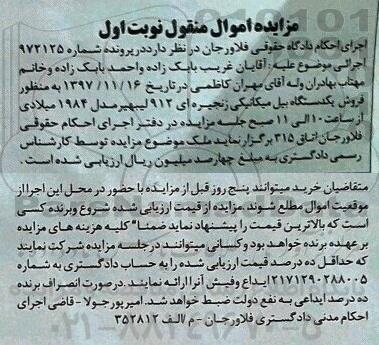 مزایده اموال منقول نوبت اول
اجرای احکام دادگاه حقوقی فلاورجان در نظر دارد در پرونده شماره ۹۷۲۱۲۵
اجرائی موضوع علیه: آقایان غریب بابک زاده واحمد بابک زاده وخانم
مهتاب بهادران وله آقای مهران کاظمی در تاریخ ۱۳۹۷/۱۱/۱۶ به منظور
فروش یکدستگاه بیل مکانیکی زنجیره ای ۹۱۲ لیبهر مدل ۱۹۸۴ میلادی
از ساعت ۱۰ الی ۱۱ صبح جلسه مزایده در دفتر اجرای احکام حقوقی
فلاورجان اتاق ۳۱۵ برگزار نماید ملک موضوع مزایده توسط کارشناس
رسمی دادگستری به مبلغ چهارصد میلیون ریال ارزیابی شده است .
متقاضیان خرید میتوانند پنج روز قبل از مزایده با حضور در محل این اجرا از
موقعیت اموال مطلع شوند. مزایده از قیمت ارزیابی شده شروع وبرنده کسی
است که بالاترین قیمت را پیشنهاد نماید ضمنا" کلیه هزینه های مزایده
بر عهده برنده خواهد بود وکسانی میتوانند در جلسه مزایده شرکت نمایند
که حداقل ده درصد قیمت ارزیابی شده را به حساب دادگستری به شماره
۲۱۷۱۲۹۰۲۸۸۰۰۵ ایداع وفیش آنرا ارائه نمایند . درصورت انصراف برنده
ده درصد ایداعی به نفع دولت ضبط خواهد شد. امیر پورجولا - قاضی اجرای
احکام مدنی دادگستری فلاورجان - م/الف ۳۵۲۸۱۲